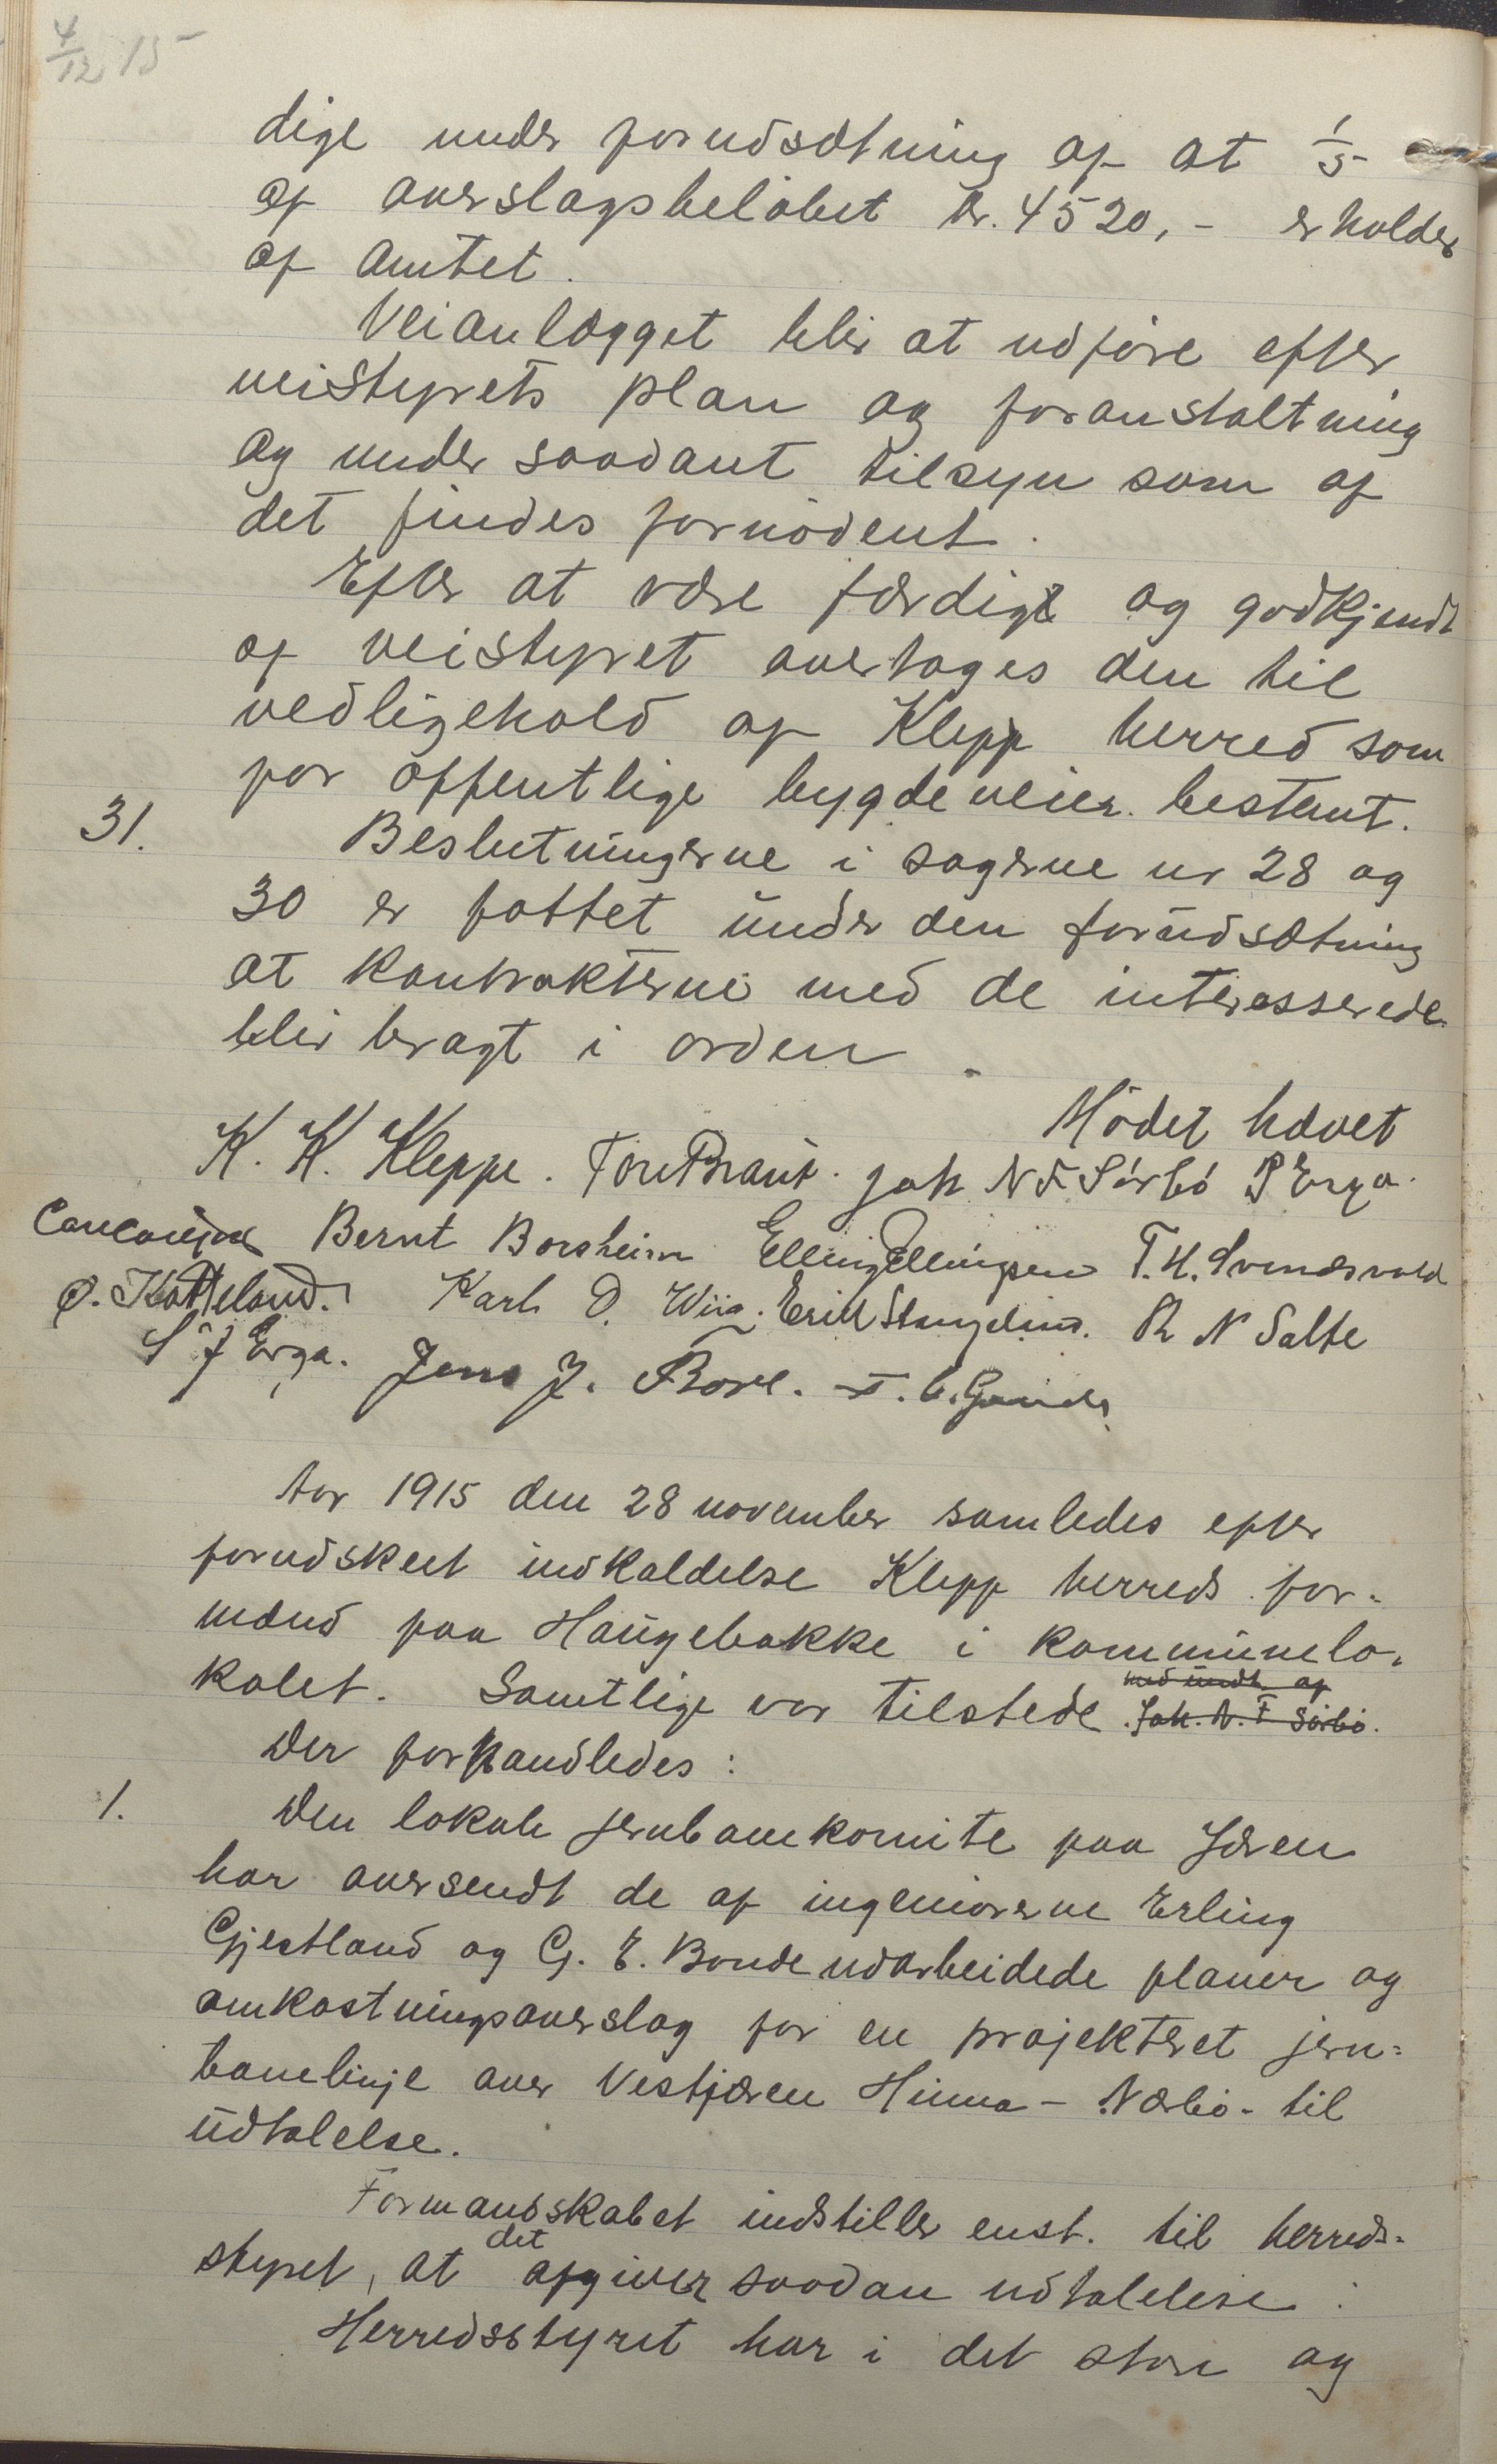 4/12 15
dige under forudsætning af at 1/5
af overslagsbeløbet kr. 4520,- erholdes
af amtet.
Veianlægget blir at udføre efter
veistyrets plan og foranstaltning
og under saadant tilsyn som af
det findes fornødent.
Efter at være færdigt og godkjendt
af veistyret overtages den til
vedligehold af Klepp herred som
for offentlige bygdeveier bestemt.
31. Beslutningerne i sagerne nr 28 og
30 er fattet under den forudsætning
at kontrakterne med de interesserede
blir bragt i orden.
Mødet hævet
K. K. Kleppe. Tore Braut. Joh N F Sørbø P Erga.
Bernt Borsheim Elling Ellingsen T. H.
O. Hatteland. Karl O. Wiig. Erik R N Salte
S J Erga. Jens J. Bore.
Aar 1915 den 28 november samledes efter
forudskeet indkaldelse Klepp herreds for-
mænd paa Haugebakke i kommunelo-
kalet. Samtlige var tilstede med undt. af
Joh. N. F Sørbø.
Der forhandledes:
1. Den lokale jernbanekomite paa Jæren
har oversendt de af ingeniørerne Erling
Gjestland og G. E. Bonde udarbeidede planer og
omkostningsoverslag for en projekteret jern-
banelinje over Vestjæren Hinna - Nærbø - til
udtalelse.
Formandskabet indstiller enst. til herreds-
styret, at det afgiver saadan udtalelse:
Herredsstyret har i det store og